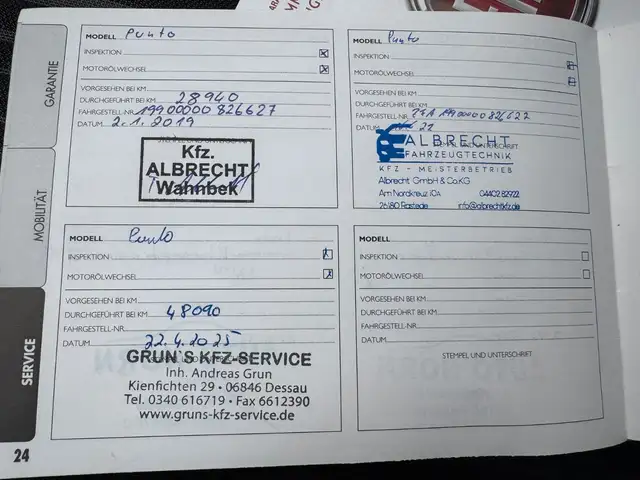 GARANTIE
MOBILITÄT
SERVICE
24
MODELL Punto
INSPEKTION
MOTORÖLWECHSEL
VORGESEHEN BEI KM
DURCHGEFÜHRT BEI KM 28940
FAHRGESTELL-NR. 19900000826627
DATUM 2.1.2019
Kfz.
ALBRECHT
Wahnbek
MODELL Punto
INSPEKTION
MOTORÖLWECHSEL
VORGESEHEN BEI KM
DURCHGEFÜHRT BEI KM
FAHRGESTELL-NR.
DATUM 21
ALBRECHT
FAHRZEUGTECHNIK
KFZ - MEISTERBETRIEB
Albrecht GmbH & Co.KG
Am Nordkreuz 10A 04402 82922
26180 Rastede info@albrechtkfz.de
MODELL Punto
INSPEKTION
MOTORÖLWECHSEL
VORGESEHEN BEI KM
DURCHGEFÜHRT BEI KM 48090
FAHRGESTELL-NR.
DATUM 22.4.2025
GRUN`S KFZ-SERVICE
Inh. Andreas Grun
Kienfichten 29 • 06846 Dessau
Tel. 0340 616719 • Fax 6612390
www.gruns-kfz-service.de
MODELL
INSPEKTION
MOTORÖLWECHSEL
VORGESEHEN BEI KM
DURCHGEFÜHRT BEI KM
FAHRGESTELL-NR.
DATUM
STEMPEL UND UNTERSCHRIFT